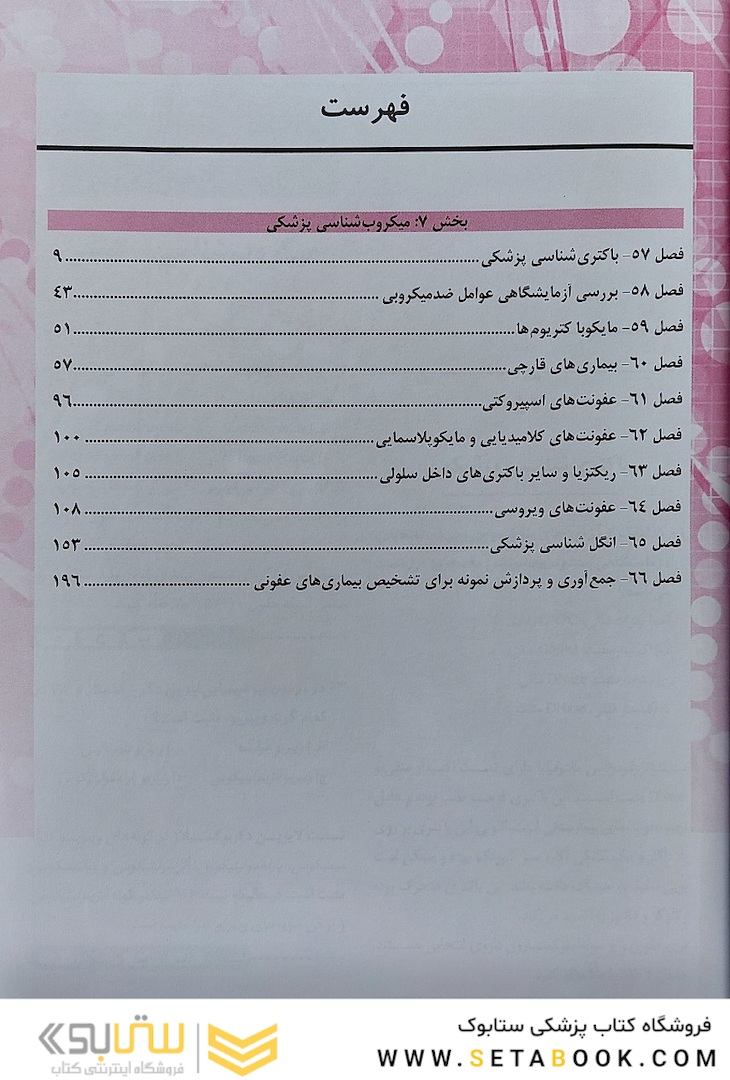 فهرست
بخش ۷: میکروب‌شناسی پزشکی
فصل ۵۷- باکتری‌شناسی پزشکی ۹
فصل ۵۸- بررسی آزمایشگاهی عوامل ضدمیکروبی ۴۳
فصل ۵۹- مایکوباکتریوم‌ها ۵۱
فصل ۶۰- بیماری‌های قارچی ۵۷
فصل ۶۱- عفونت‌های اسپیروکتی ۹۶
فصل ۶۲- عفونت‌های کلامیدیایی و مایکوپلاسمایی ۱۰۰
فصل ۶۳- ریکتزیا و سایر باکتری‌های داخل سلولی ۱۰۵
فصل ۶۴- عفونت‌های ویروسی ۱۰۸
فصل ۶۵- انگل شناسی پزشکی ۱۵۳
فصل ۶۶- جمع‌آوری و پردازش نمونه برای تشخیص بیماری‌های عفونی ۱۹۶
فروشگاه کتاب پزشکی ستابوک
WWW.SETABOOK.COM
ستابوک
فروشگاه اینترنتی کتاب